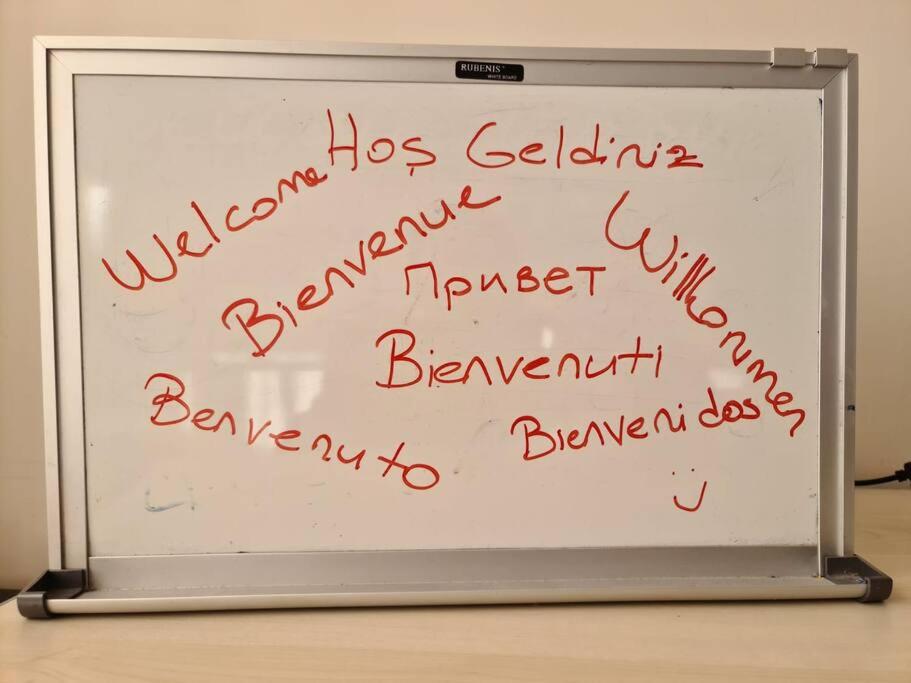 RUBENIS
WHITE BOARD
Hoş Geldiniz
Welcome
Bienvenue
Willkommen
Привет
Bienvenuti
Benvenuto
Bienvenidos